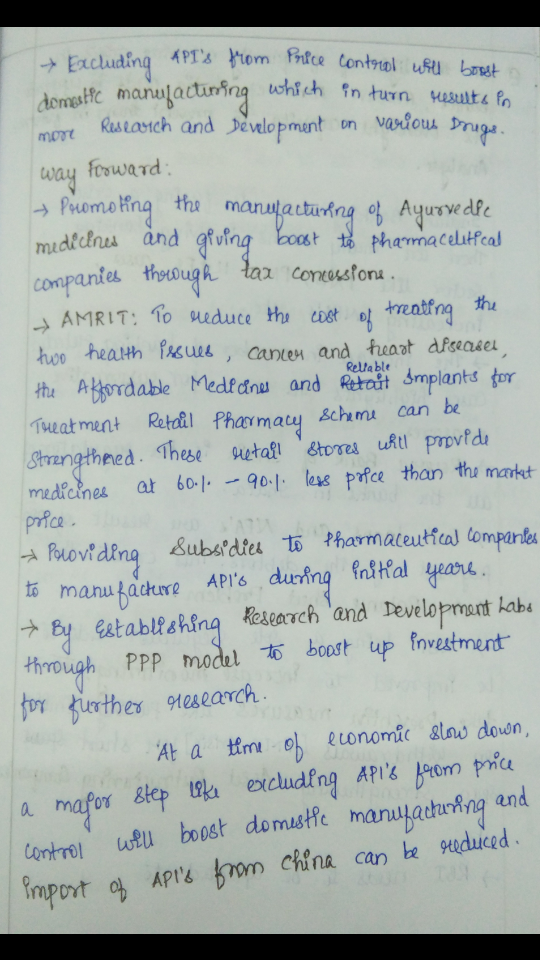 → Excluding API's from Price Control will boost
domestic manufacturing which in turn results in
more Research and Development on various Drugs.
Way Forward:
→ Promoting the manufacturing of Ayurvedic
medicines and giving boost to pharmaceutical
companies through tax concessions.
→ AMRIT: To reduce the cost of treating the
two health issues, cancer and heart diseases,
the Affordable Medicines and Reliable Implants for
Treatment Retail Pharmacy scheme can be
Strengthened. These retail stores will provide
medicines at 60% - 90% less price than the market
price.
→ Providing Subsidies to Pharmaceutical Companies
to manufacture API's during initial years.
→ By Establishing Research and Development Labs
through PPP model to boost up investment
for further research.
At a time of economic slow down,
a major step like excluding API's from price
control will boost domestic manufacturing and
import of API's from China can be reduced.